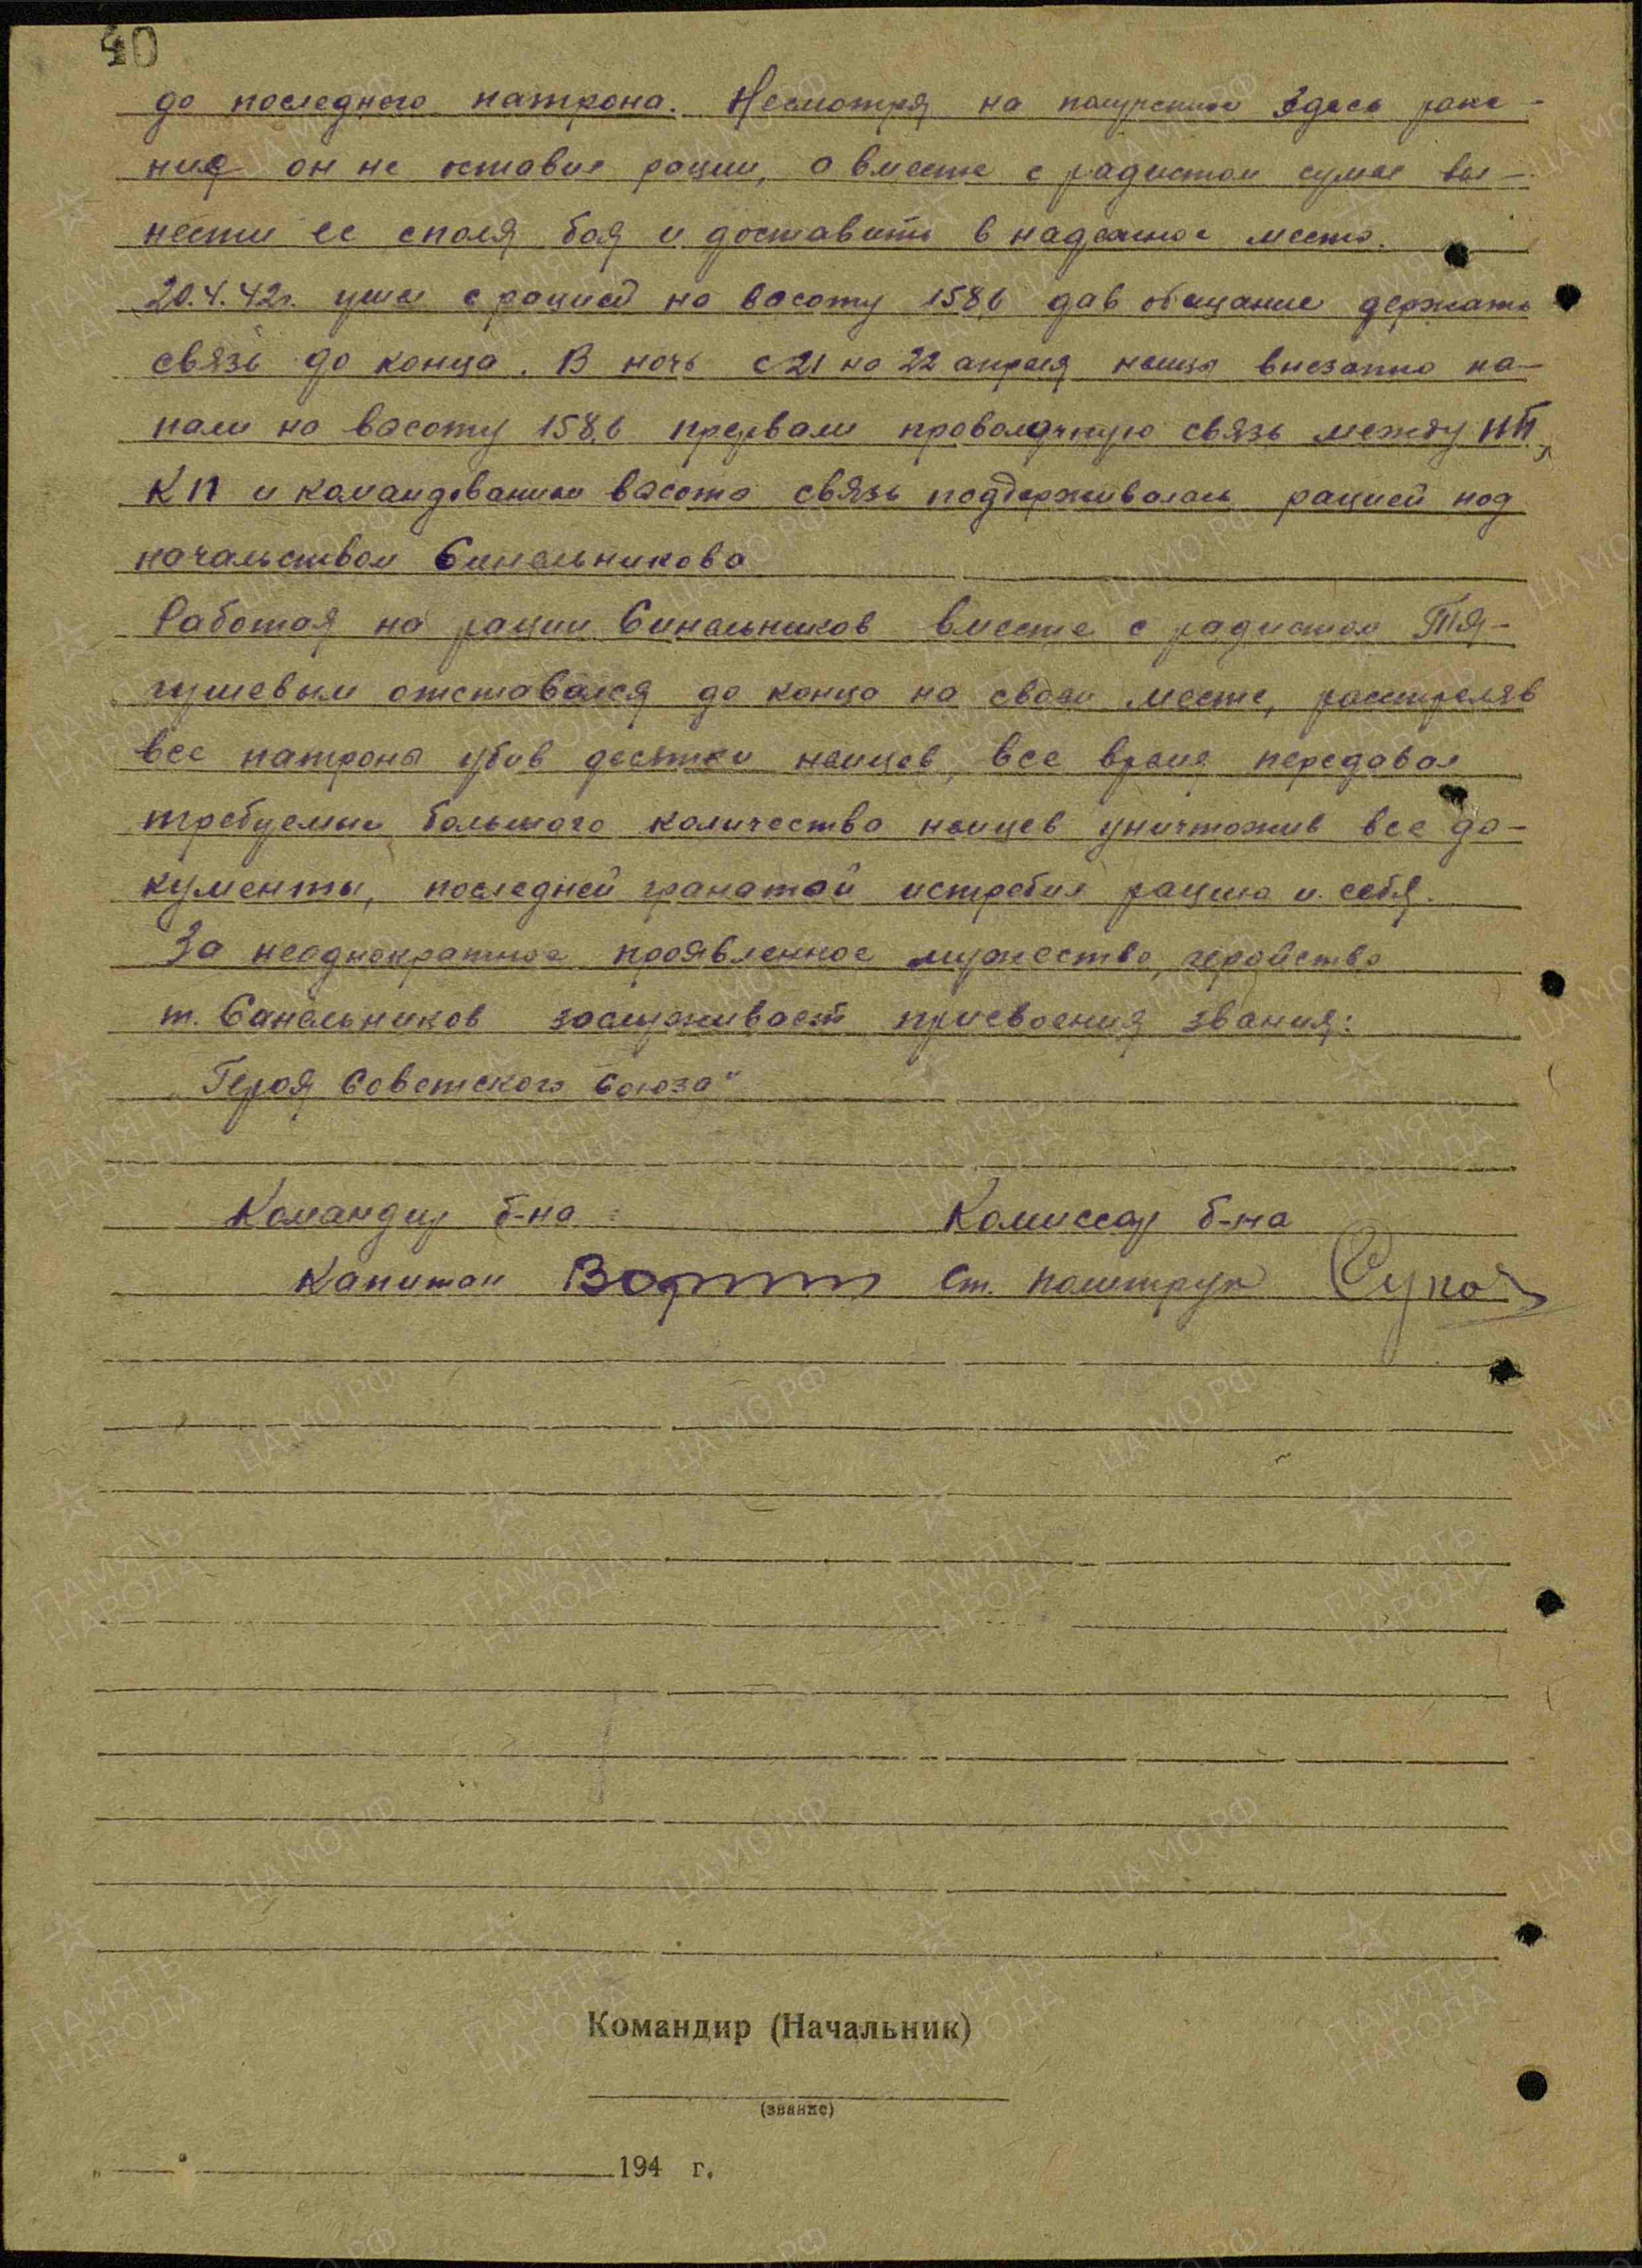 40
до последнего патрона. Несмотря на полученные здесь ране-
ния он не оставил рации, а вместе с радистом сумел вы-
нести ее споля боя и доставить в надежное место.
20.4.42г. ушел с рацией на высоту 158,6 дав обещание держать
связь до конца. В ночь с 21 на 22 апреля немцы внезапно на-
пали на высоту 158,6 прервали проволочную связь между НП,
КП и командованием высоты связь поддерживалась рацией под
начальством Синельникова
Работая на рации Синельников вместе с радистом Тя-
гушевым отставался до конца на своем месте, расстреляв
все патроны убив десятки немцев, все время передавал
требуемые большого количества немцев уничтожив все до-
кументы, последней гранатой истребил рацию и себя.
За неоднократное проявленное мужество, геройство
т. Синельников заслуживает присвоения звания:
„Героя Советского Союза"
Командир б-на Комиссар б-на
Капитан Ст. политрук
Командир (Начальник)
(звание)
" " 194 г.
ЦА МО РФ
ПАМЯТЬ
НАРОДА